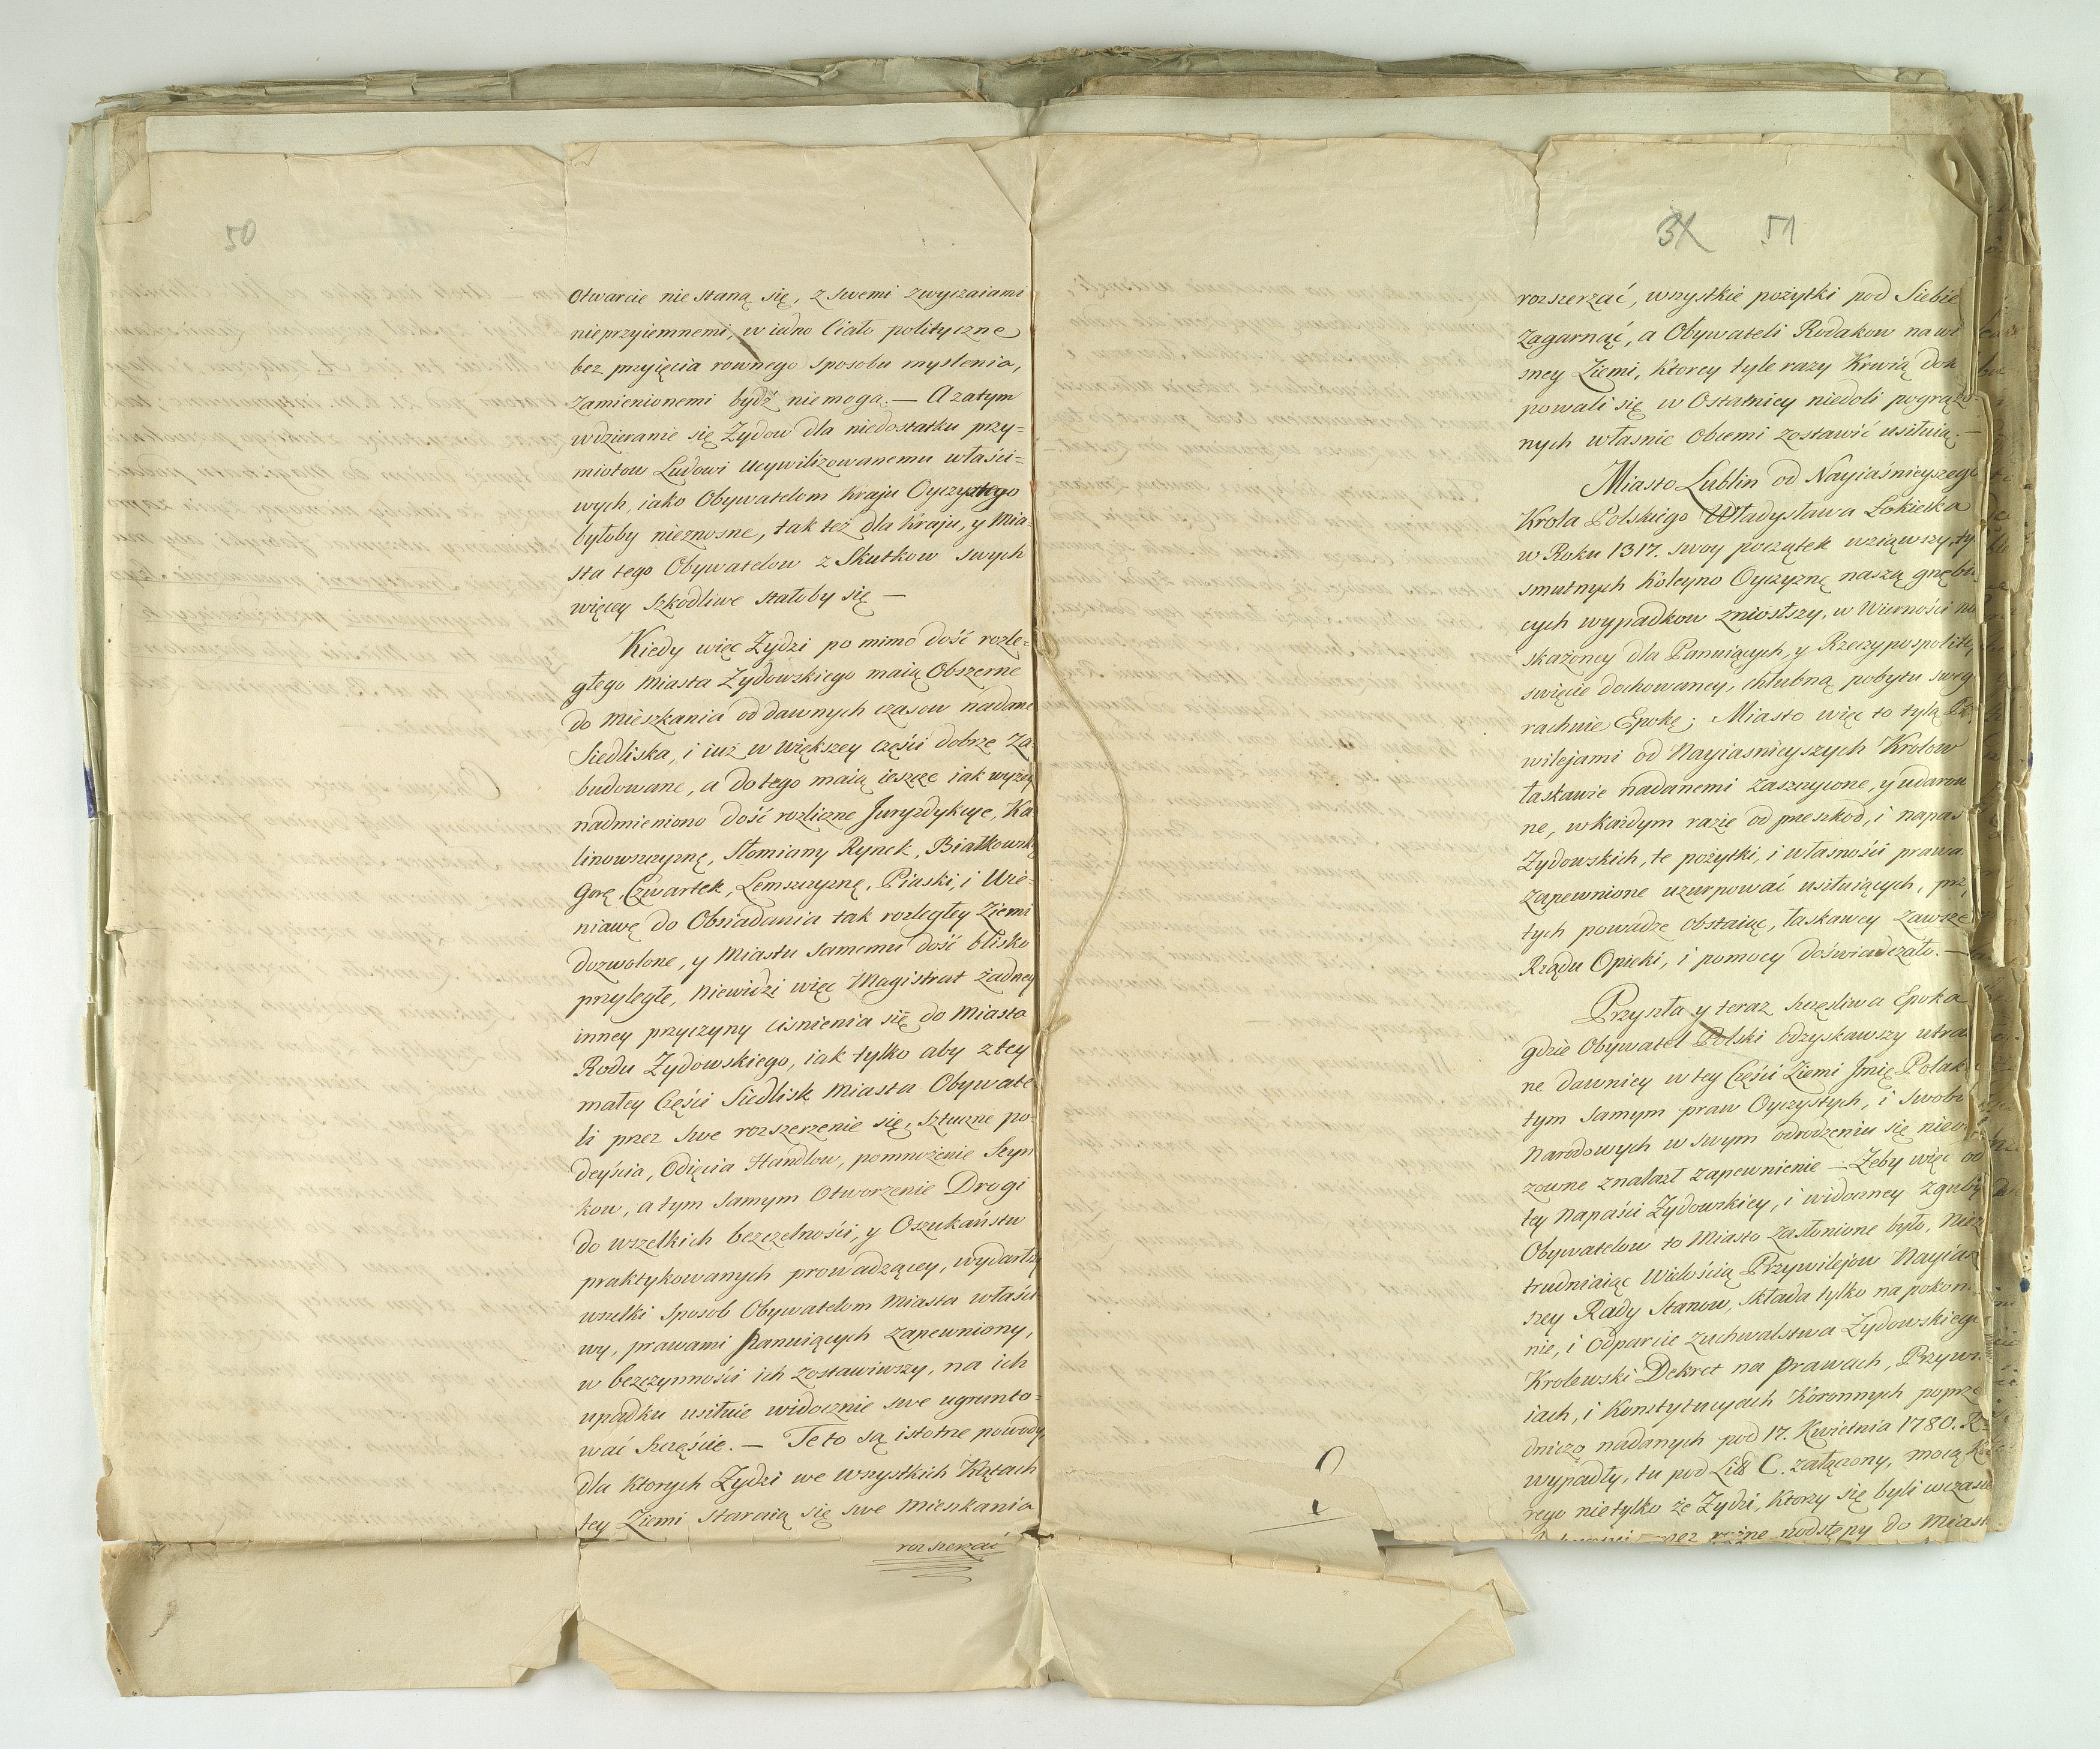 50
otwarcie nie staną się, z swemi zwyczaiami
nieprzyiemnemi, w iedno Ciało polityczne
bez przyięcia rownego sposobu myslenia,
zamienionemi bydź niemogą. — A zatym
wdzieranie się Żydow dla niedostatku przy=
miotow Ludowi ucywilizowanemu właści=
wych, iako Obywatelom Kraju Oyczystego
byłoby nieznosne, tak też dla kraju, y Mia=
sta tego Obywatelow z Skutkow swych
więcey szkodliwe stałoby się —
Kiedy więc Żydzi po mimo dość rozle=
głego miasta Żydowskiego maią Obszerne
do mieszkania od dawnych czasow nadane
Siedliska, i iuż w większey części dobrze Za
budowane, a do tego maią ieszcze iak wyżey
nadmieniono dość rozliczne Juryzdykcye, Ka
linowszczyznę, Słomiany Rynek, Białkowską
Gorę, Czwartek, Lemszczyznę, Piaski, i Wie=
niawę do Obsiadania tak rozległey Ziemi
dozwolone, y Miastu samemu dość blisko
przyległe, niewidzi więc Magistrat żadney
inney przyczyny cisnienia się do Miasta
Rodu Żydowskiego, iak tylko aby z tey
małey Części Siedlisk miasta Obywate
li przez swe rozszerzenie się, sztuczne po=
deyścia, Odięcia Handlow, pomnożenie Szyn
kow, a tym samym Otworzenie Drogi
do wszelkich bezczelności, y Oszukaństw
praktykowanych prowadzącey, wydarłszy
wszelki sposob Obywatelom Miasta właści
wy, prawami Panuiących zapewniony,
w bezczynności ich zostawiwszy, na ich
upadku usiłuie widocznie swe ugrunto=
wać szczęście. — Te to są istotne powody
dla ktorych Żydzi we wszystkich Kątach
tey Ziemi staraią się swe mieszkania
rozszerzać
51
rozszerzać, wszystkie pożytki pod Siebie
zagarnąć, a Obywateli Rodakow na wł
sney Ziemi, ktorey tyle razy Krwią
powali się w Ostatniey niedoli pogrążo
nych własnie Obcemi zostawić usiłuią. —
Miasto Lublin od Nayiaśnieyszego
Krola Polskiego Władysława Łokietka
w Roku 1317. swoy początek wziąwszy, ty
smutnych koleyno Oyczyznę naszą gnębią
cych wypadkow zniosłszy, w Wierności nie
skażoney dla Panuiących, y Rzeczypospolitey
swięcie dochowaney, chlubną pobytu sweg
rachuie Epokę; Miasto więc to tylą Pr
wilejami od Nayiasnieyszych Krolow
łaskawie nadanemi zaszczycone, y udarow
ne, w każdym razie od przeszkod, i napaś
Żydowskich, te pożytki, i własności prawa
zapewnione uzurpować usiłuiących, prz
tych powadze obstaiąc, łaskawey zawsze
Rządu Opieki, i pomocy doświadczało. —
Przyszła y teraz szczęsliwa Epoka
gdzie Obywatel Polski odzyskawszy utra
ne dawniey w tey Części Ziemi Jmię Polak
tym samym praw Oyczystych, i Swobo
Narodowych w swym odrodzeniu się niew
zowne znalazł zapewnienie — Żeby więc od
tey napaści Żydowskiey, i widoczney zguby
Obywatelow to Miasto zasłonione było, niez
trudniaiąc Wielością Przywilejow Nayiaś
szey Rady Stanow, składa tylko na pokon
nie, i Odparcie zuchwalstwa Żydowskiego
Krolewski Dekret na prawach, Przywi
iach, i Konstytucyach Koronnych poprze
dniczo nadanych pod 17. Kwietnia 1780. R
wypadły, tu pod Litt C. załączony, mocą kto
rego nie tylko że Żydzi, ktorzy się byli wczas
rożne podstępy do Miast